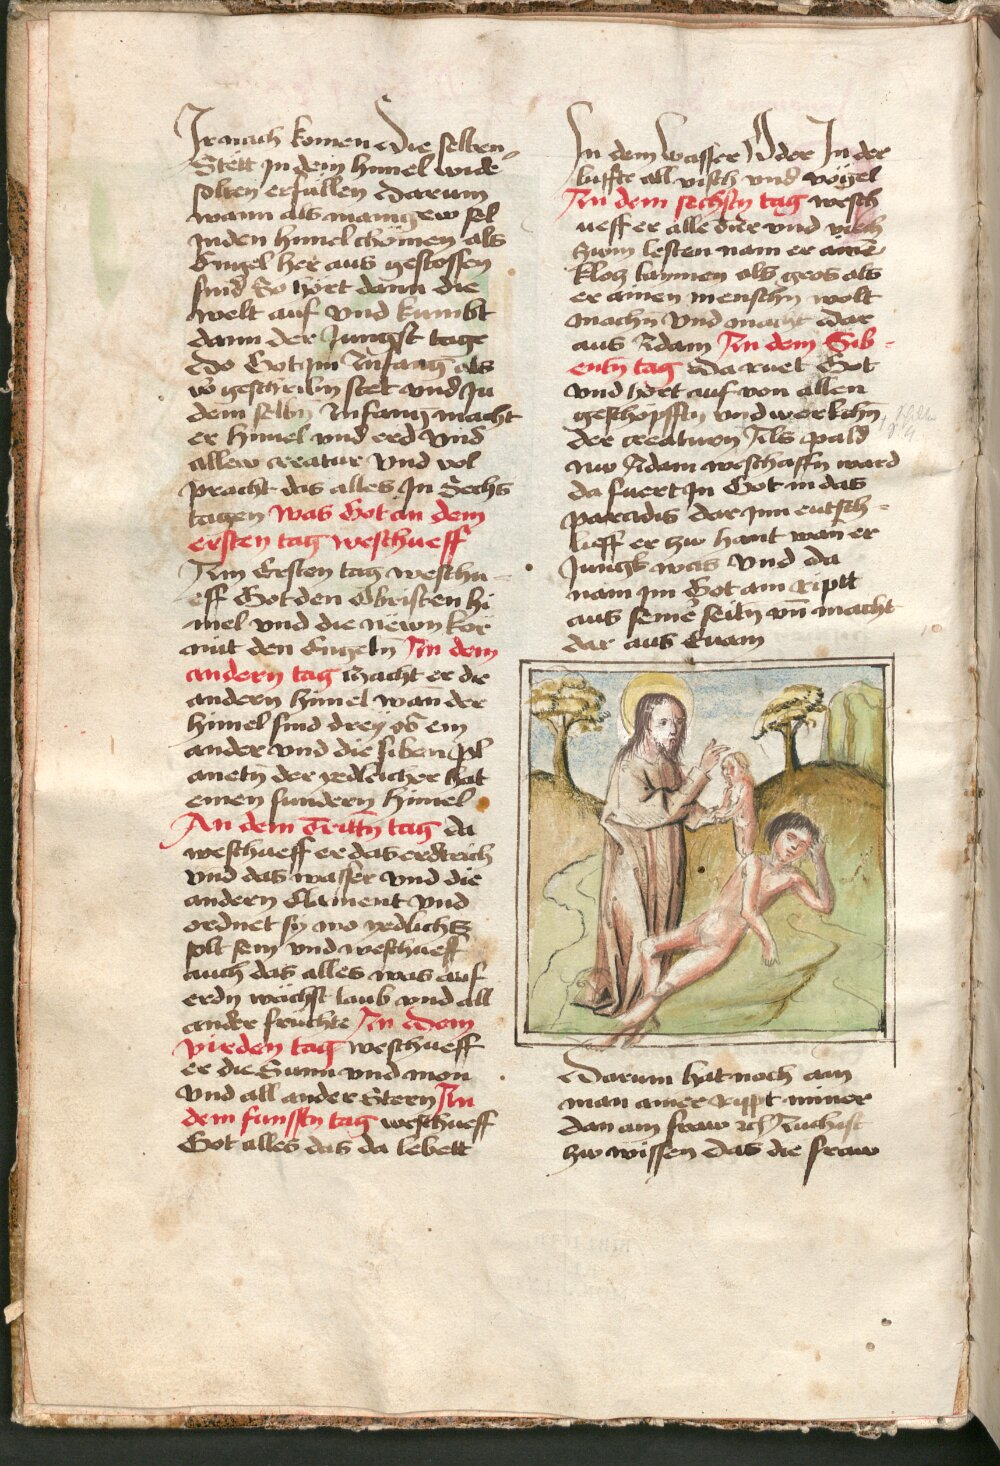 Ir nach komen die selben
Stett in dem himel wide
solten erfullen darum
wann als manigew sel
in den himel chomen als
Engel her aus gestossen
sind So hört dann die
welt auf vnd kumbt
dann der Jungst tage
do Got im Anfang als
vo geschribn stet vnd In
dem selbn Anfang macht
er himel vnd erd vnd
allew creatur vnd vol
pracht das alles In Sechs
tagen Was Got an dem
ersten tag weschueff
Am Ersten tag weschu
eff Got den Obristen hi
mel vnd die newn kör
mit den Engeln An dem
andern tag Macht er die
andern himel wan der
himel sind dreÿ ob ein
ander vnd die siben pl
anetn der yedleicher hat
einen sundern himel
An dem Drittn tag da
weschueff er das erdtreich
vnd das wasser vnd die
andern Element vnd
ordnet sy wo yedlichs
solt sein vnd weschueff
auch das alles was auf
erdn wächst laub vnd all
ander fruchte An dem
virden tag weschueff
er die Sunn vnd mon
vnd all ander Stern An
dem funfftn tag weschueff
Got alles das da lebett
In dem Wasser Oder In der
lufft all visch vnd vögel
An dem sechstn tag wesch
ueff er alle dier vnd viech
zum lesten nam er ainē
kloz laymen als gros als
er ainen menschn wolt
machn vnd macht dar
aus Adam An dem Sib
entn tag da ruet Got
vnd hört auf von allen
geschöpfftn vnd werkchn
der creaturn Als pald
nw Adam weschaffn ward
da fuert In Got in das
paradis dar Inn entsch
lieff er zw hant wan er
Jungk was vnd da
nam im Got ain ripp
aus seiner seitn vn̄ macht
dar aus Euam
Darum hat noch ain
man ainer ripp minor
dan ain fraw Ich
zw wissen das die fraw